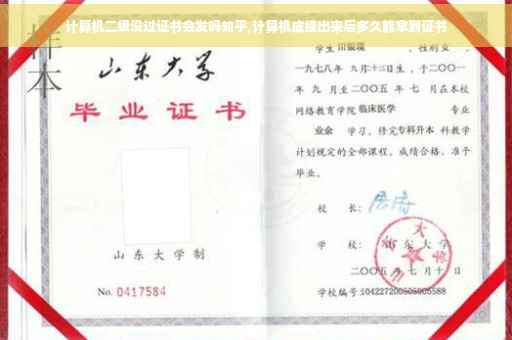 计算机二级没过证书会发吗知乎,计算机成绩出来后多久能拿到证书
样本
山东大学
毕业证书
山东大学制
No. 0417584
学生 田銀瑞 ,性别 女 ,
一九七八年 九月十三日生,于二〇〇一
年 九 月至二〇〇五 年 七 月在本校
网络教育学院 临床医学 专业
业余 学习,修完专科升本 科教学
计划规定的全部课程,成绩合格,准予
毕业。
校 长:
学 校: 山东大学
二〇〇五年 七月十日
学校编号:104227200505005588